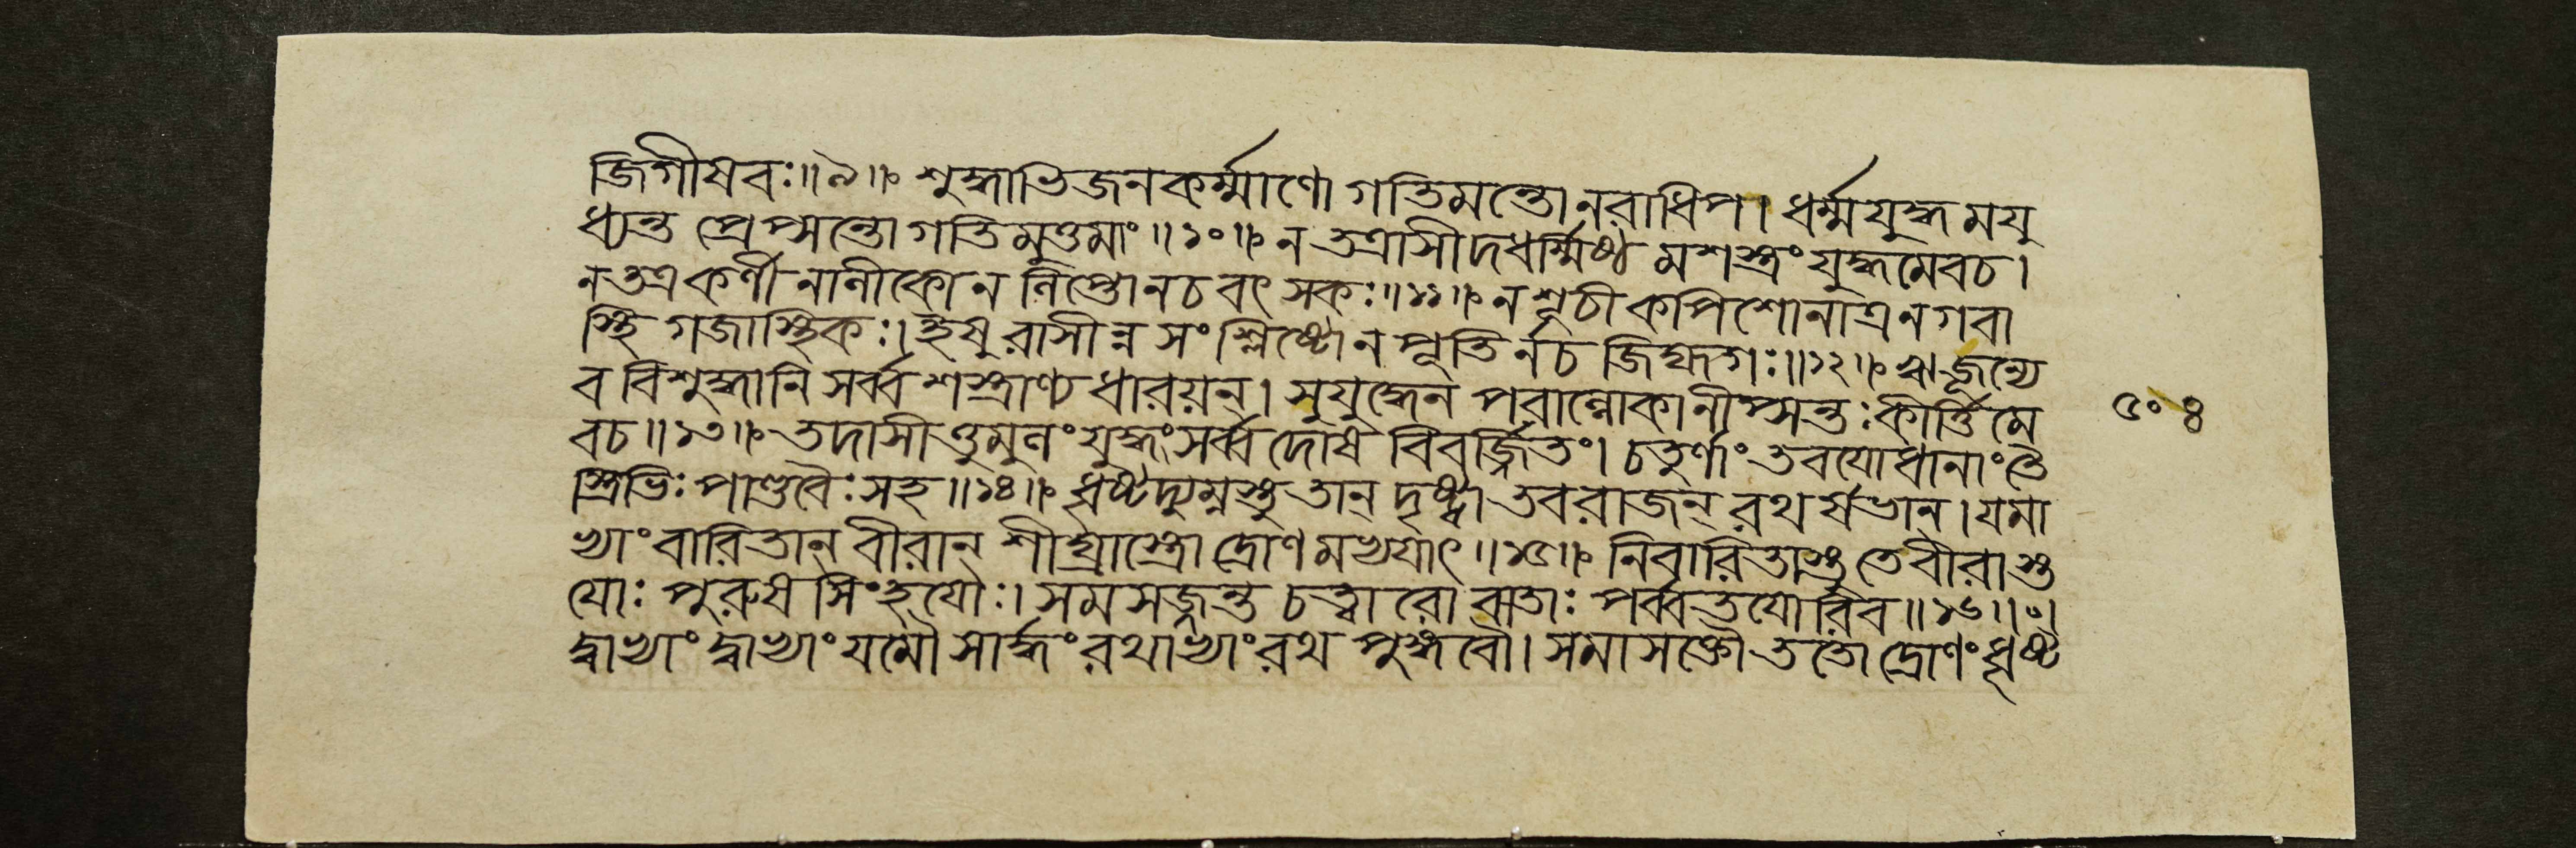 জিগীষবঃ॥৯॥ শুদ্ধাভিজনকর্ম্মাণো গতিমন্তোনরাধিপ। ধর্ম্মযুদ্ধমযু
ধ্যন্ত প্রেপ্সন্তোগতিমুত্তমাং॥১০॥ ন তত্রাসীদধর্ম্মিষ্ঠ মশস্ত্রং যুদ্ধমেবচ।
নতত্র কর্ণী নালীকোন লিপ্তোনচ বৎসকঃ॥১১॥ ন শূচী কপিশোনাত্রনগবা
স্থি গজাস্থিকঃ। ইষু রাসীন্ন সংশ্লিষ্টোন পূতি র্নচ জিহ্মগঃ॥১২॥ ঋজূন্যে
ব বিশুদ্ধানি সর্ব্ব শস্ত্রাণ্য ধারয়ন্। সুযুদ্ধেন পরাল্লোকানীপ্সন্তঃকীর্ত্তিমে
বচ॥১৩॥ তদাসীত্তুমুলং যুদ্ধং সর্ব্বদোষ বিবর্জ্জিতং। চতুর্ণাং তবযোধানাংতৈ
স্ত্রিভিঃ পাণ্ডবৈঃ সহ॥১৪॥ ধৃষ্টদ্যুম্নস্তু তান্ দৃষ্ট্বা তবরাজন্ রথর্ষভান্। যমা
ভ্যাং বারিতান্ বীরান্ শীঘ্রাস্ত্রো দ্রোণমভ্যয়াৎ॥১৫॥ নিবারিতাস্তু তেবীরাস্ত
যোঃ পুরুষ সিংহযোঃ। সমসজ্জন্ত চত্বারো বাতাঃ পর্ব্বতযোরিব॥১৬॥
দ্বাভ্যাং দ্বাভ্যাং যমৌ সার্দ্ধং রথাভ্যাং রথ পুঙ্গবৌ। সমাসক্তৌ ততো দ্রোণং ধৃষ্ট
৫০৪